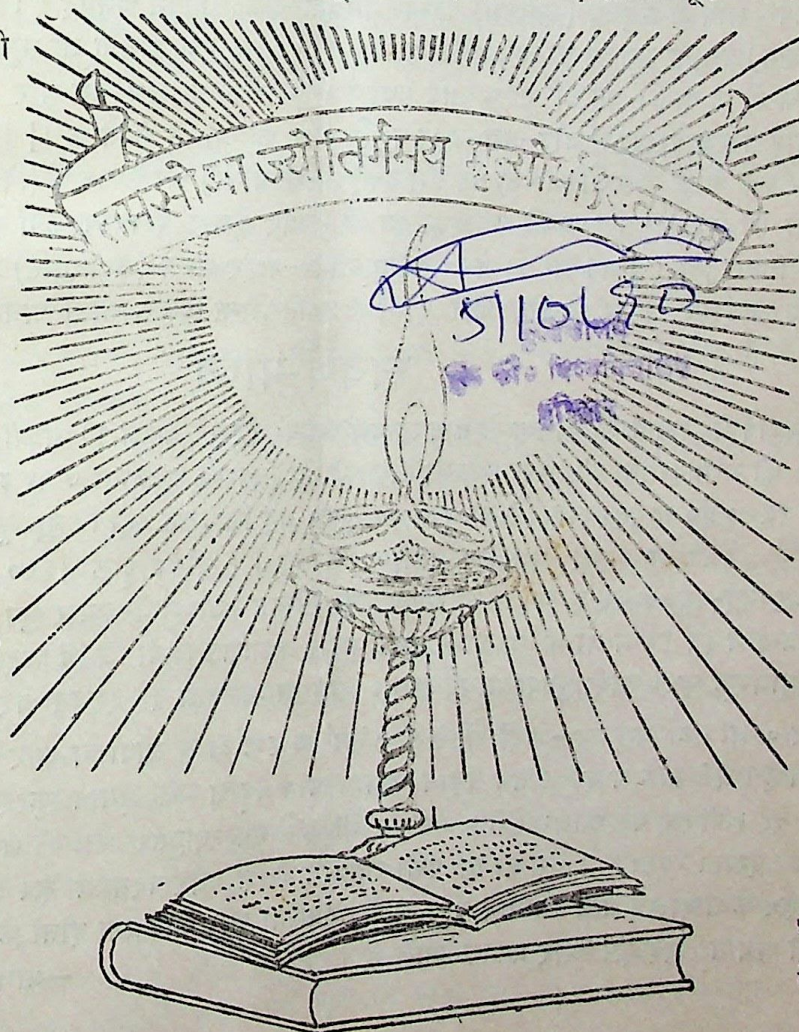 तमसोमा ज्योतिर्गमय मृत्योर्माऽमृतंगमय
5/10/90